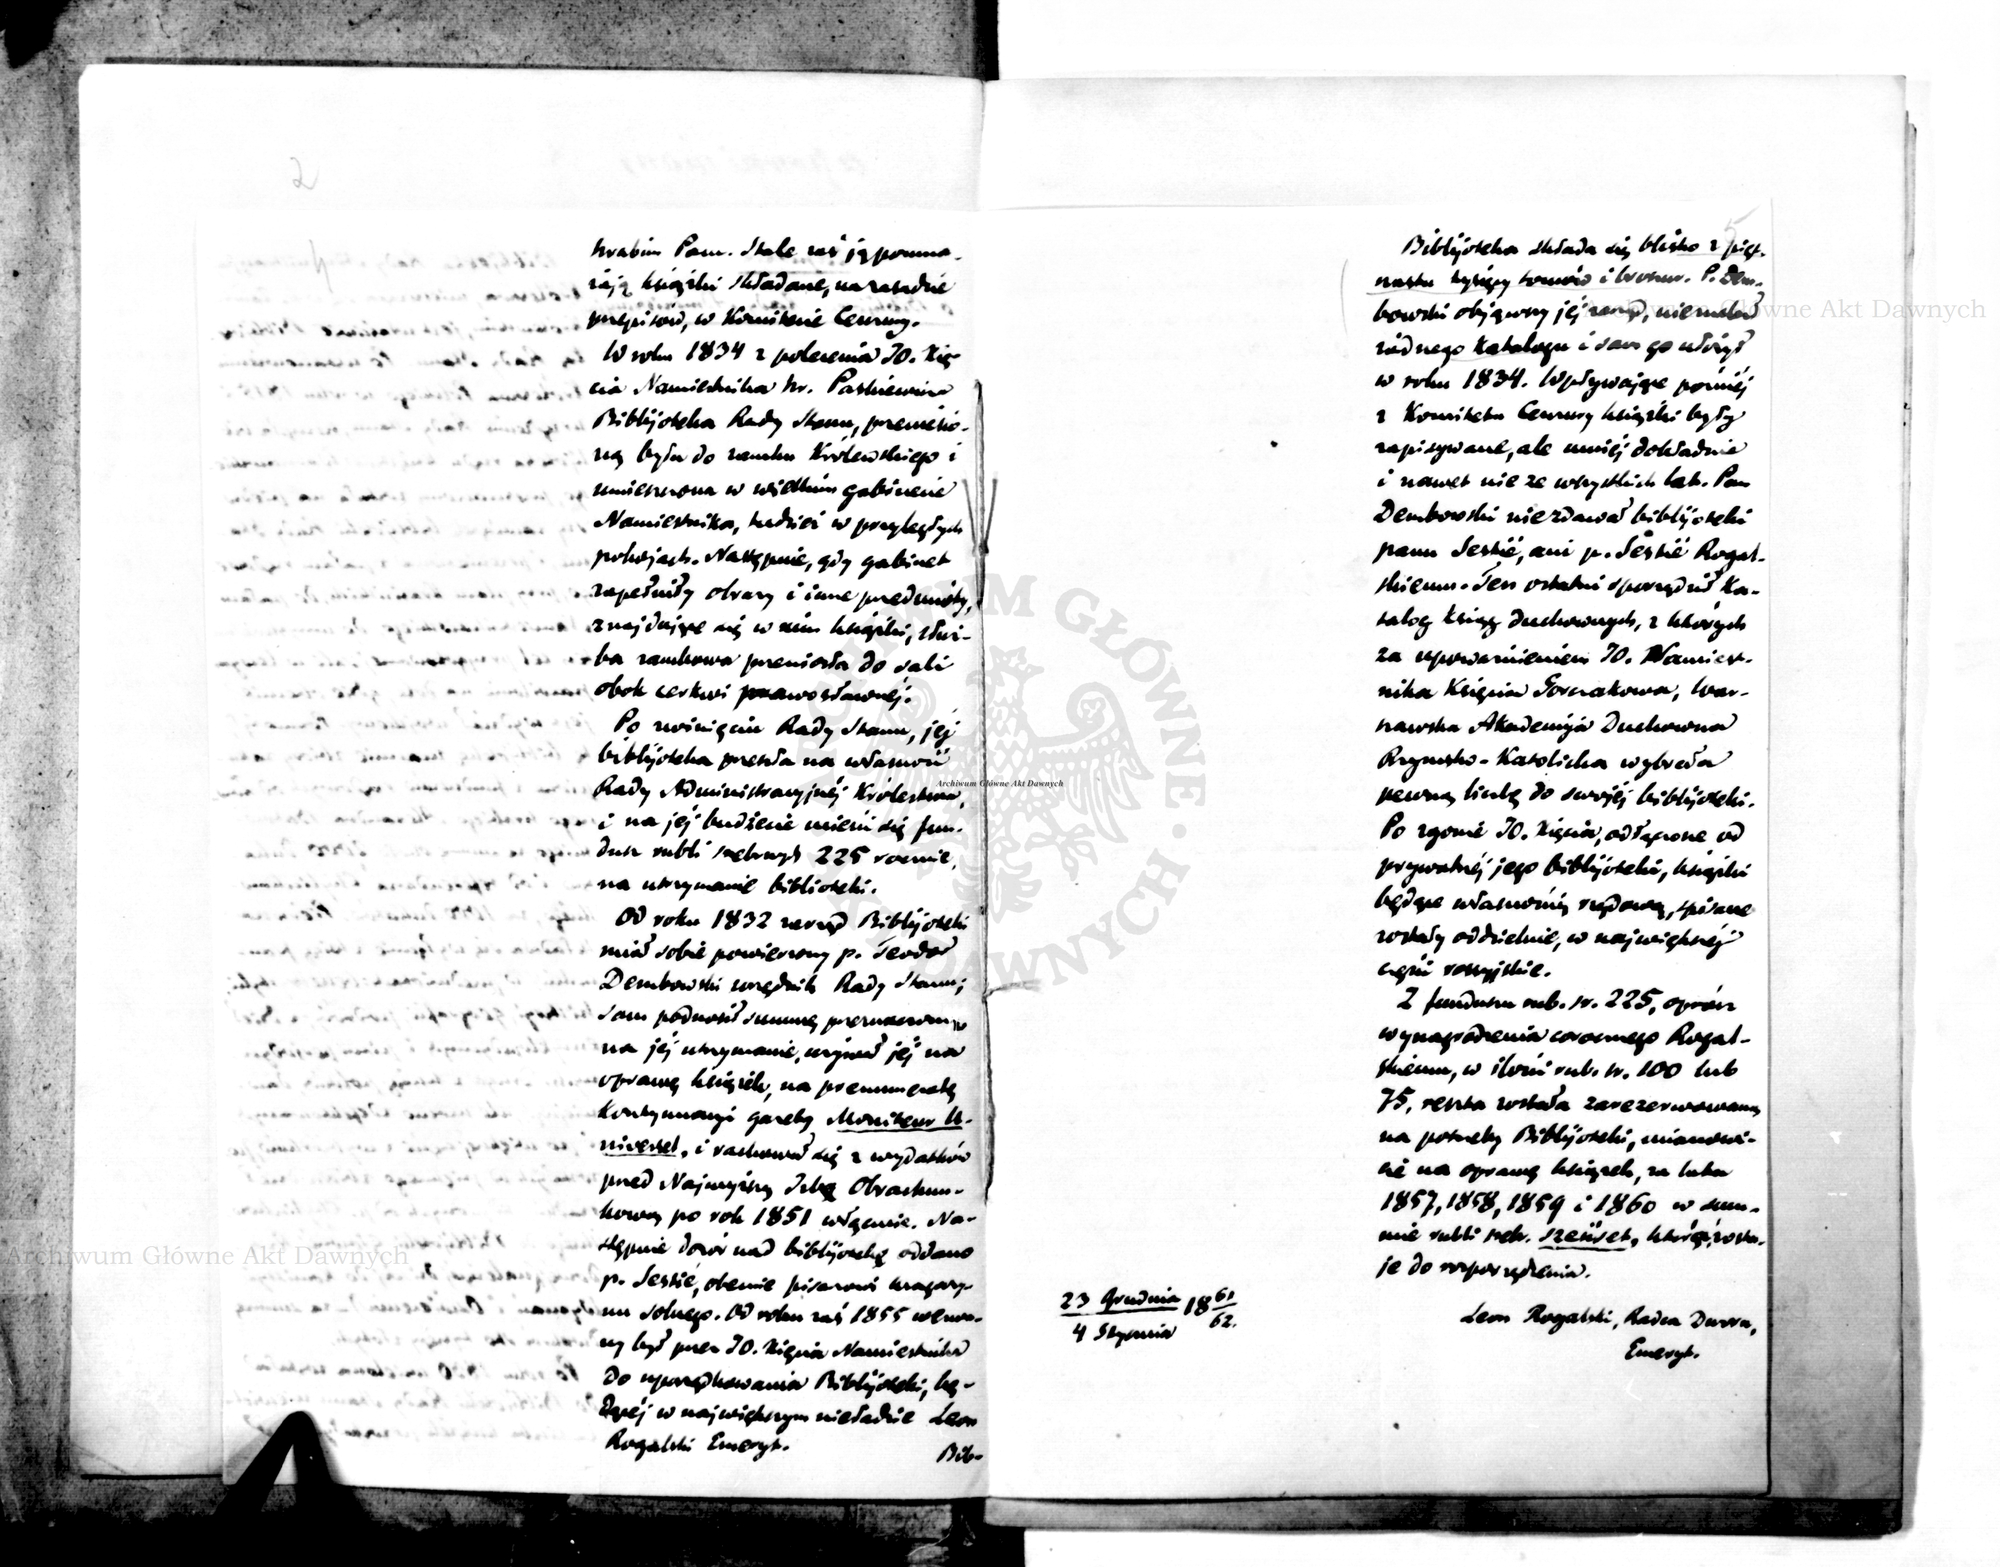 2
hrabim Pam. Stale zaś ją pomna-
żają książki składane, na zasadzie
przepisów, w Komitecie Cenzury.
W roku 1834 z polecenia JO. Xię-
cia Namiestnika hr. Paskiewicza
Biblijoteka Rady Stanu, przeniesio-
ną była do zamku Królewskiego i
umieszczona w wielkim gabinecie
Namiestnika, tudzież w przyległych
pokojach. Następnie, gdy gabinet
zapełniły obrazy i inne przedmioty,
znajdujące się w nim książki, służ-
ba zamkowa przeniosła do sali
obok cerkwi prawosławnéj.
Po zwinięciu Rady Stanu, jéj
biblijoteka przeszła na własność
Rady Administracyjnéj Królestwa,
i na jéj budżecie mieści się fun-
dusz rubli srebrnych 225 rocznie,
na utrzymanie biblioteki.
Od roku 1832 zarząd Biblijoteki
miał sobie powierzony p. Teodor
Dembowski urzędnik Rady Stanu;
sam podnosił summę przeznaczoną
na jéj utrzymanie, używał jéj na
oprawę książek, na prenumeratę
kontynuacyi gazety Moniteur U-
niversel, i rachował się z wydatków
przed Najwyższą Izbą Obrachun-
kową po rok 1851 włącznie. Na-
stępnie dozór nad biblijoteką oddano
p. Sestié, obecnie pisarzowi magazy-
nu solnego. Od roku zaś 1855 wezwa-
ny był przez JO. Xięcia Namiestnika
do uporządkowania Biblijoteki, bę-
dącéj w największym nieładzie Leon
Rogalski Emeryt.
Bib-
5
Biblijoteka składa się blisko z pięt-
nastu tysięcy tomów i broszur. P. Dem-
bowski objąwszy jéj zarząd, nie znalazł
żadnego katalogu i sam go ułożył
w roku 1834. Wpływające poźniéj
z Komitetu Cenzury książki były
zapisywane, ale mniéj dokładnie
i nawet nie ze wszystkich lat. Pan
Dembowski nie zdawał biblijoteki
panu Sestié, ani p. Sestié Rogal-
skiemu. Ten ostatni sporządził Ka-
talog Ksiąg duchownych, z których
za upoważnieniem JO. Namiest-
nika Księcia Gorczakowa, War-
szawska Akademija Duchowna
Rzymsko-Katolicka wybrała
pewną liczbę do swojéj biblijoteki.
Po zgonie JO. Xięcia, odłączone od
prywatnéj jego biblijoteki, książki
będące własnością rządową, spisane
zostały oddzielnie, w największéj
części rossyjskie.
Z funduszu rub. sr. 225, oprócz
wynagrodzenia corocznego Rogal-
skiemu, w ilości rub. sr. 100 lub
75, reszta została zarezerwowaną
na potrzeby Biblijoteki, mianowi-
cie na oprawę książek, za lata
1857, 1858, 1859 i 1860 w sum-
mie rubli sreb. sześćset, która zosta-
je do rozporządzenia.
Leon Rogalski, Radca Dworu,
Emeryt.
23 Grudnia 18 61
4 Stycznia 62.
Archiwum Główne Akt Dawnych
Archiwum Główne Akt Dawnych
Archiwum Główne Akt Dawnych
ARCHIWUM GŁÓWNE AKT DAWNYCH